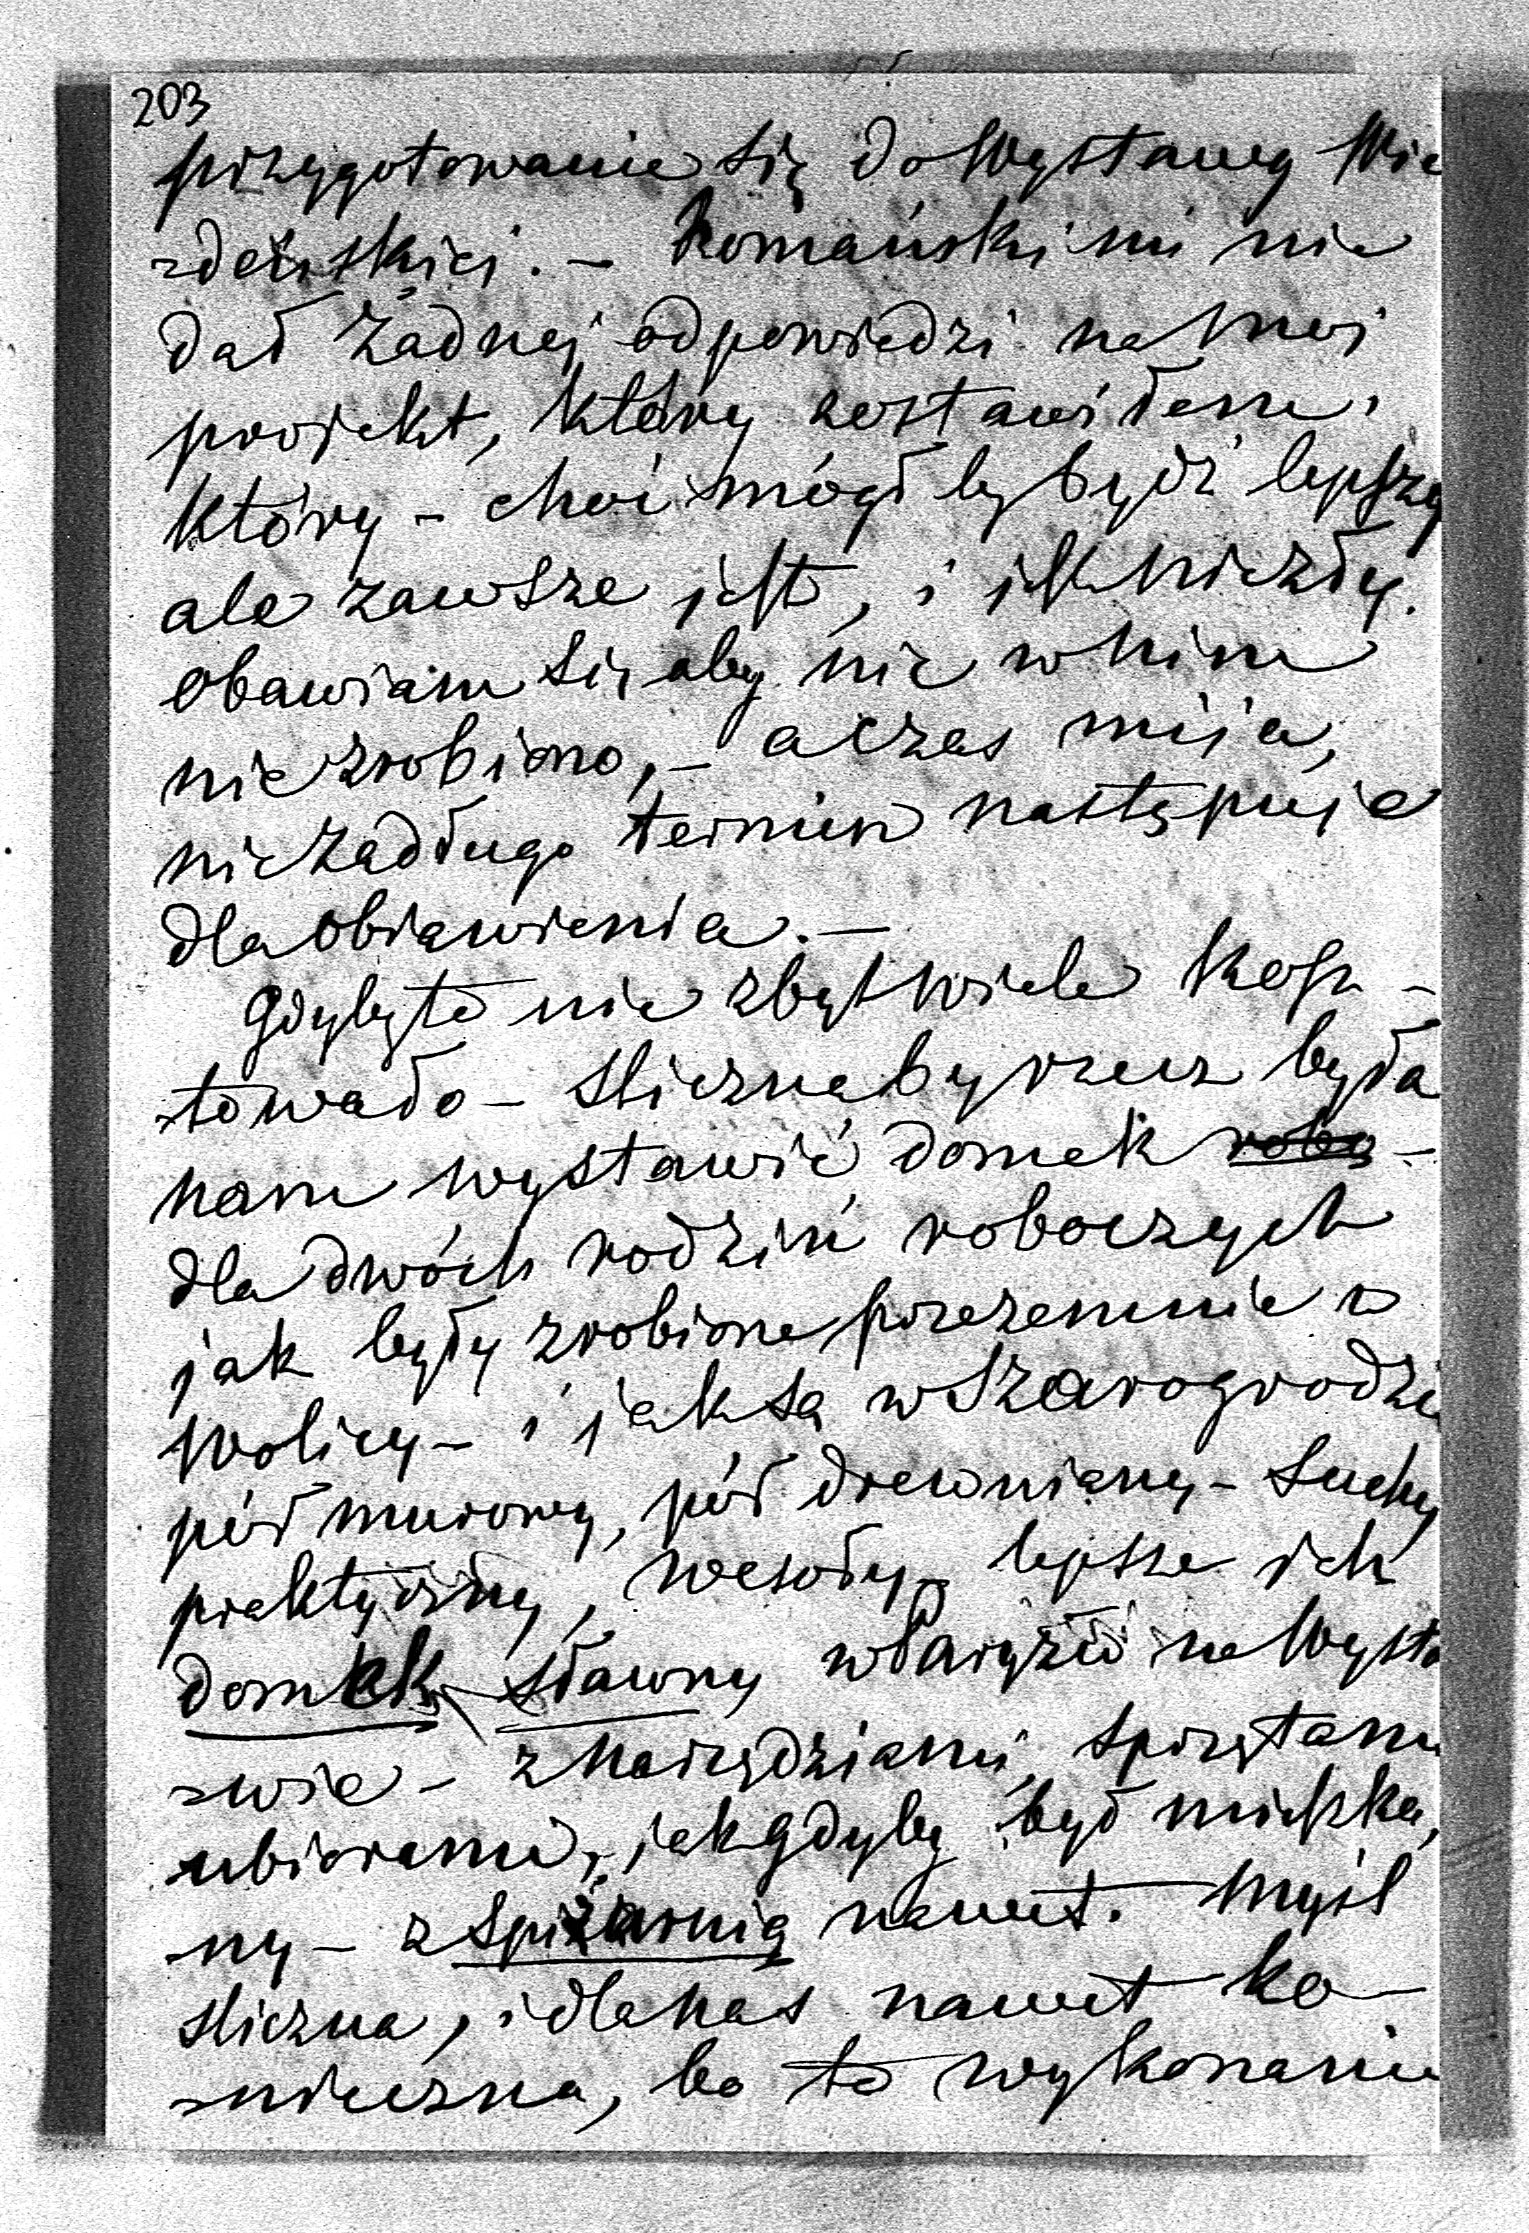 203
przygotowanie się do Wystawy Wie
-deńskiej. - Romański mi nie
dał żadnej odpowiedzi na mój
projekt, który zostawiłem,
który - choć mógł by bydź lepszy
ale zawsze jest, i jest niezły.
Obawiam się aby nic w nim
nie zrobiono, - a czas mija,
niezadługo termin następuje
dla objawienia. -
Gdyby to nie zbyt wiele kosz-
-towało - śliczna by rzecz była
nam wystawić domek robo-
dla dwóch rodzin roboczych
jak były zrobione przezemnie w
Wolicy - i jak są w Szarogrodzie
pół murowy, pół drewniany - suchy
praktyczny, wesoły - lepsze jak
domek sławny w Paryżu na Wysta
-wie - z narzędziami, sprzętami
ubiorami, jak gdyby był mieszka,
-ny - z spiżarnią nawet. Myśl
śliczna, i dla nas nawet ko-
-nieczna, bo to wykonanie